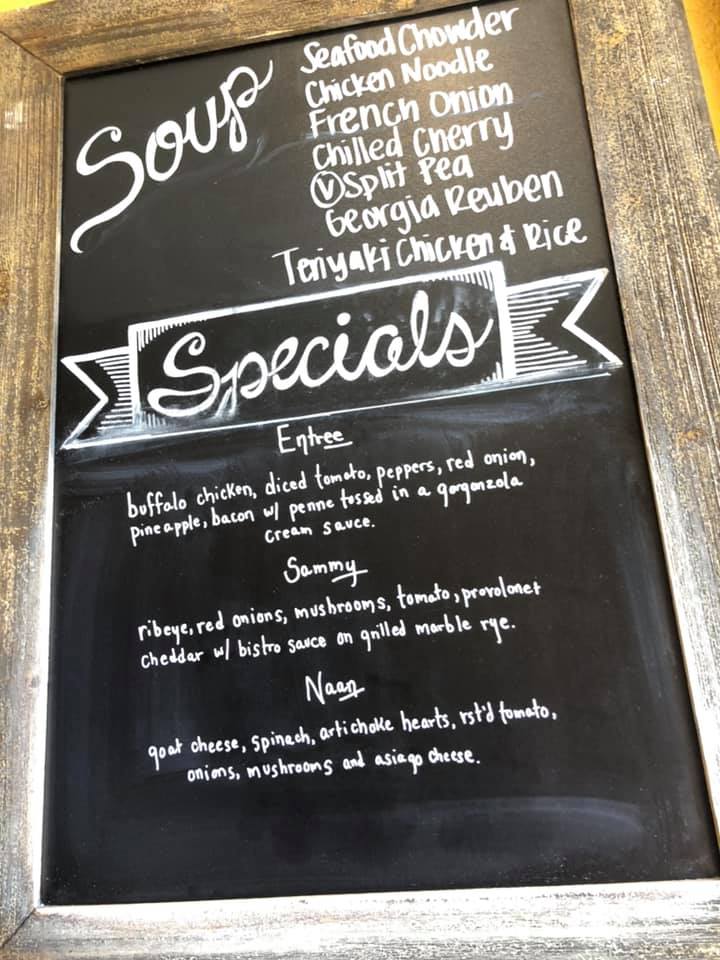 Soup
Seafood Chowder
Chicken Noodle
French Onion
Chilled Cherry
Ⓥ Split Pea
Georgia Reuben
Teriyaki Chicken & Rice
Specials
Entree
buffalo chicken, diced tomato, peppers, red onion,
pineapple, bacon w/ penne tossed in a gorgonzola
cream sauce.
Sammy
ribeye, red onions, mushrooms, tomato, provolone +
cheddar w/ bistro sauce on grilled marble rye.
Naan
goat cheese, spinach, artichoke hearts, rst'd tomato,
onions, mushrooms and asiago cheese.